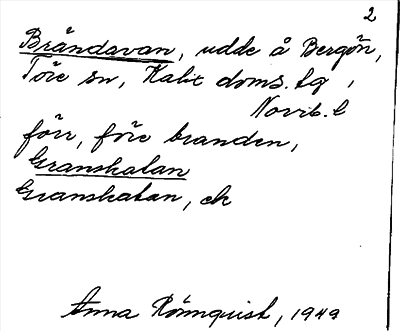 2
Brändavan, udde å Bergön,
Töre sn, Kalix doms. lg,
Norrb. l
förr, före branden,
Granskatan
Granskatan, ek
Anna Rönnquist, 1949